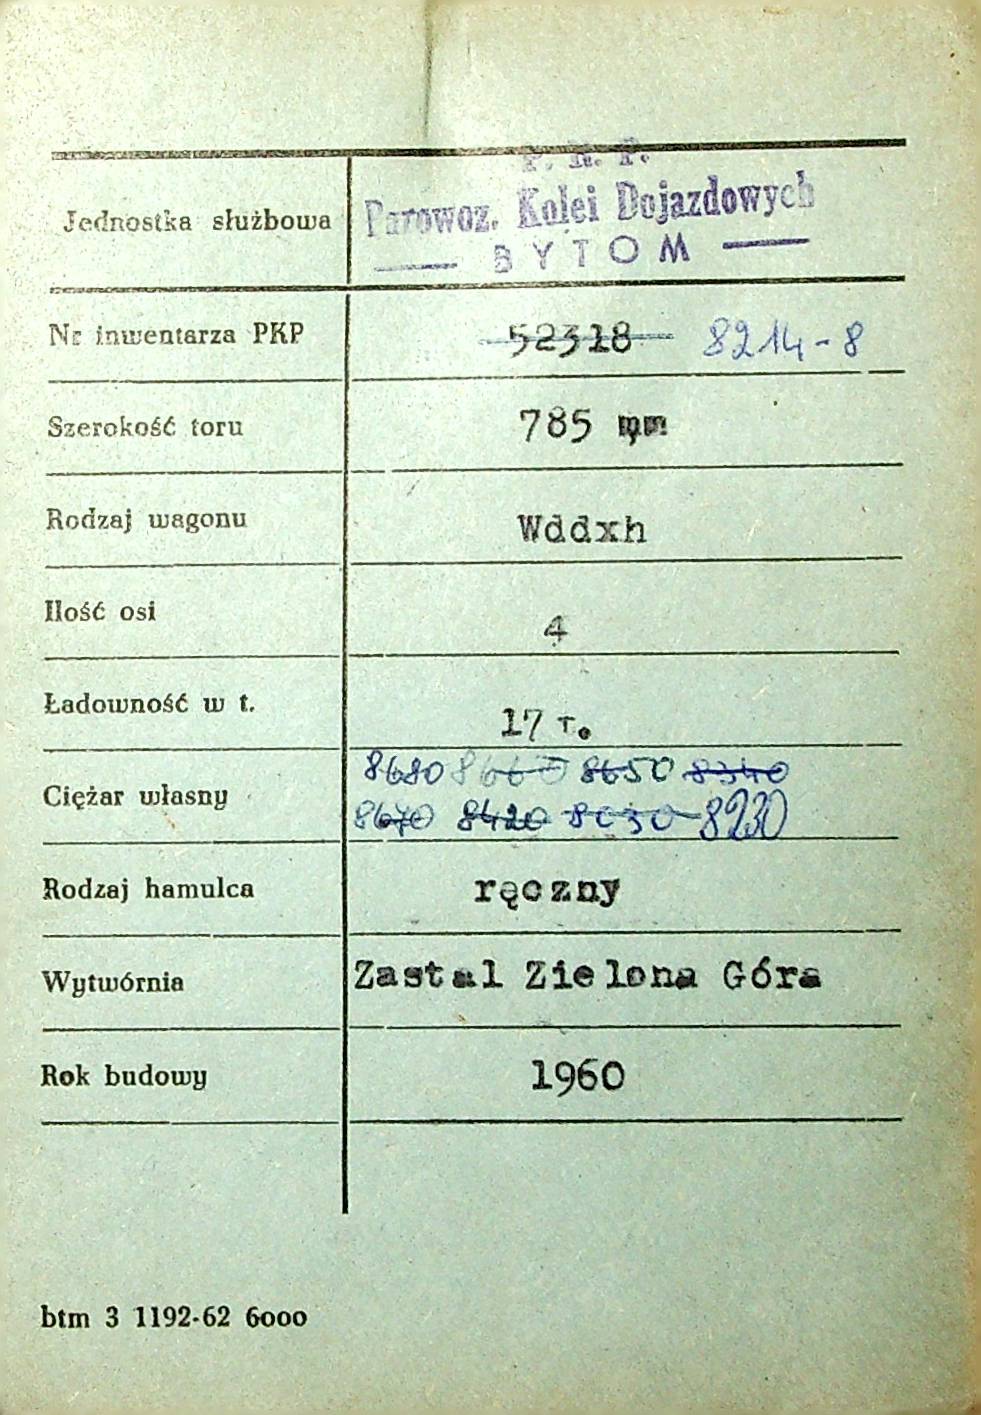 P. K. P.
Jednostka służbowa Parowoz. Kolei Dojazdowych
BYTOM
Nr inwentarza PKP 52318 8214-8
Szerokość toru 785 mm
Rodzaj wagonu Wddxh
Ilość osi 4
Ładowność w t. 17 T.
8680 8660 8650 8340
Ciężar własny 8670 8420 8030 8230
Rodzaj hamulca ręczny
Wytwórnia Zastal Zielona Góra
Rok budowy 1960
btm 3 1192-62 6000